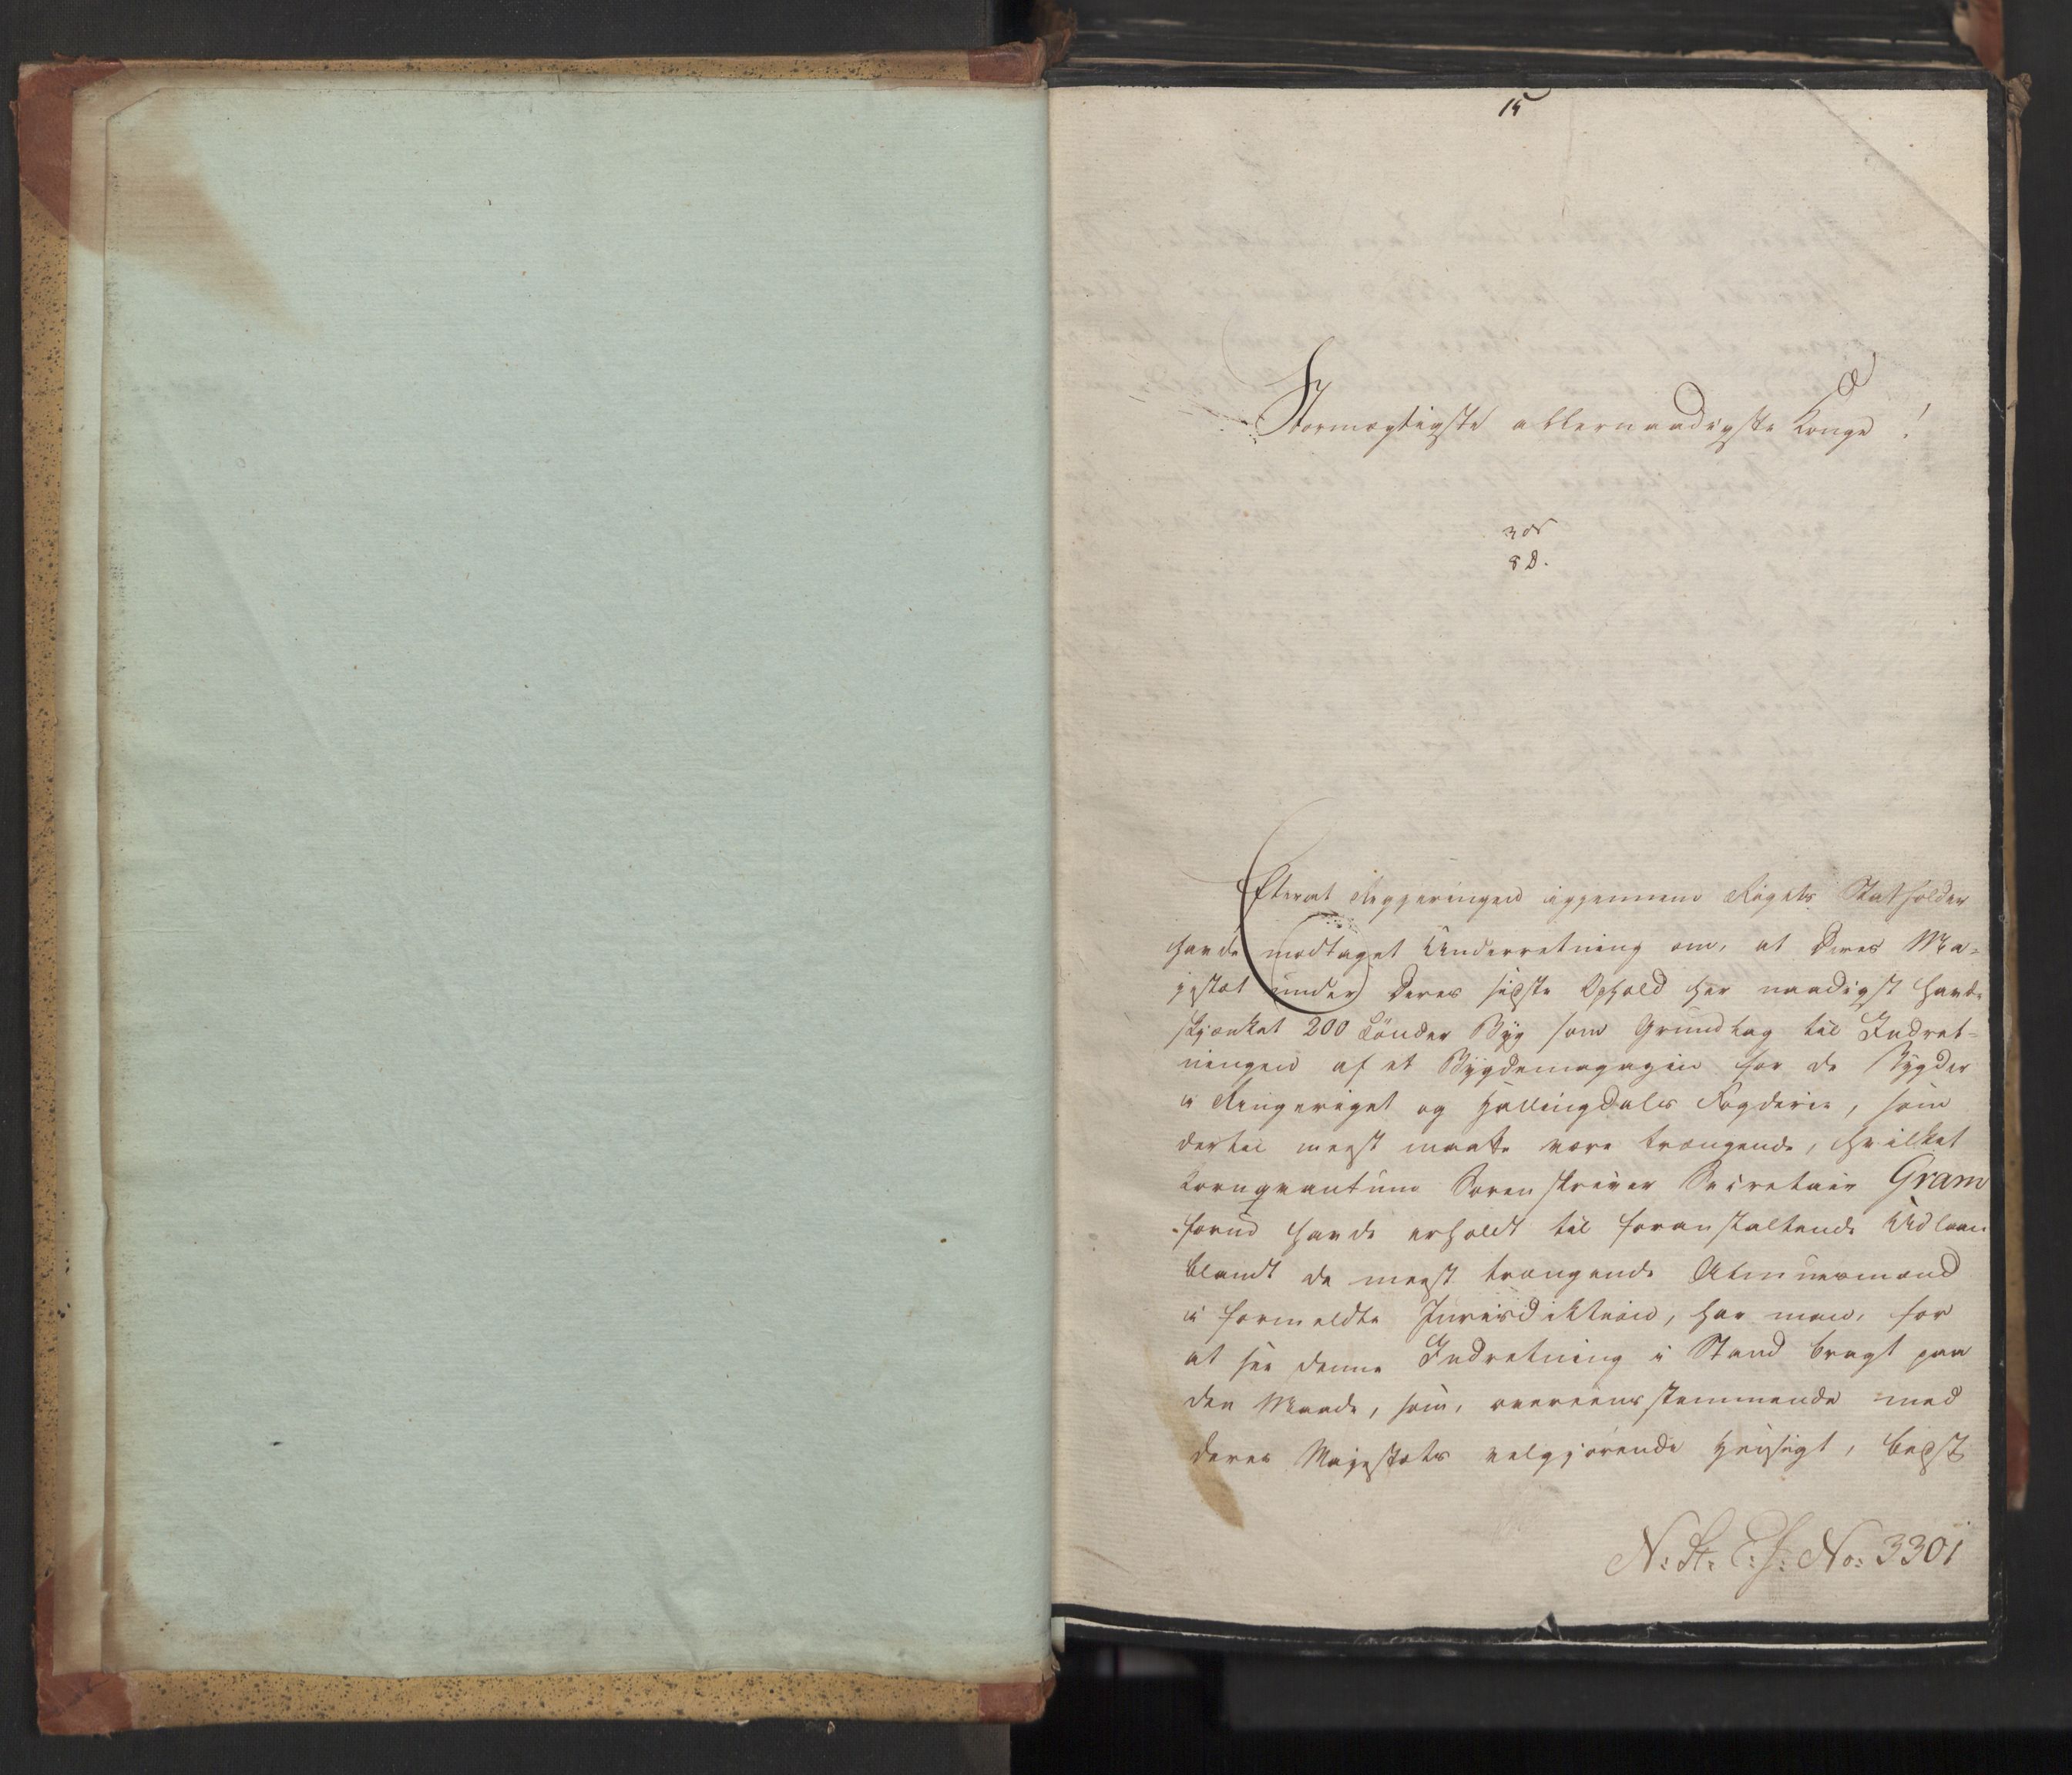 15
Stormægtigste allernaadigste Konge!
3 or
8 D.
Efterat Regjeringen igjennem Rigets Statholder
havde modtaget Underretning om, at Deres Ma-
jestæt under Deres sidste Ophold her naadigst havde
skjænket 200 Tönder Byg som Grundlag til Indret-
ningen af et Bygdemagazin for de Bygder
i Ringeriget og Hallingdals Fogderie, som
dertil meest maatte være trængende, hvilket
Kornqvantum Sorenskriver Secretair Gram
forud havde erholdt til foranstaltende Udlaan
blandt de meest trængende Almuesmænd
i formeldte Jurisdiktion, har man, for
at see denne Indretning i Stand bragt paa
den Maade, som, overeensstemmende med
Deres Majestæts velgjørende Hensigt, bedst
N: St: E: J: No: 3301